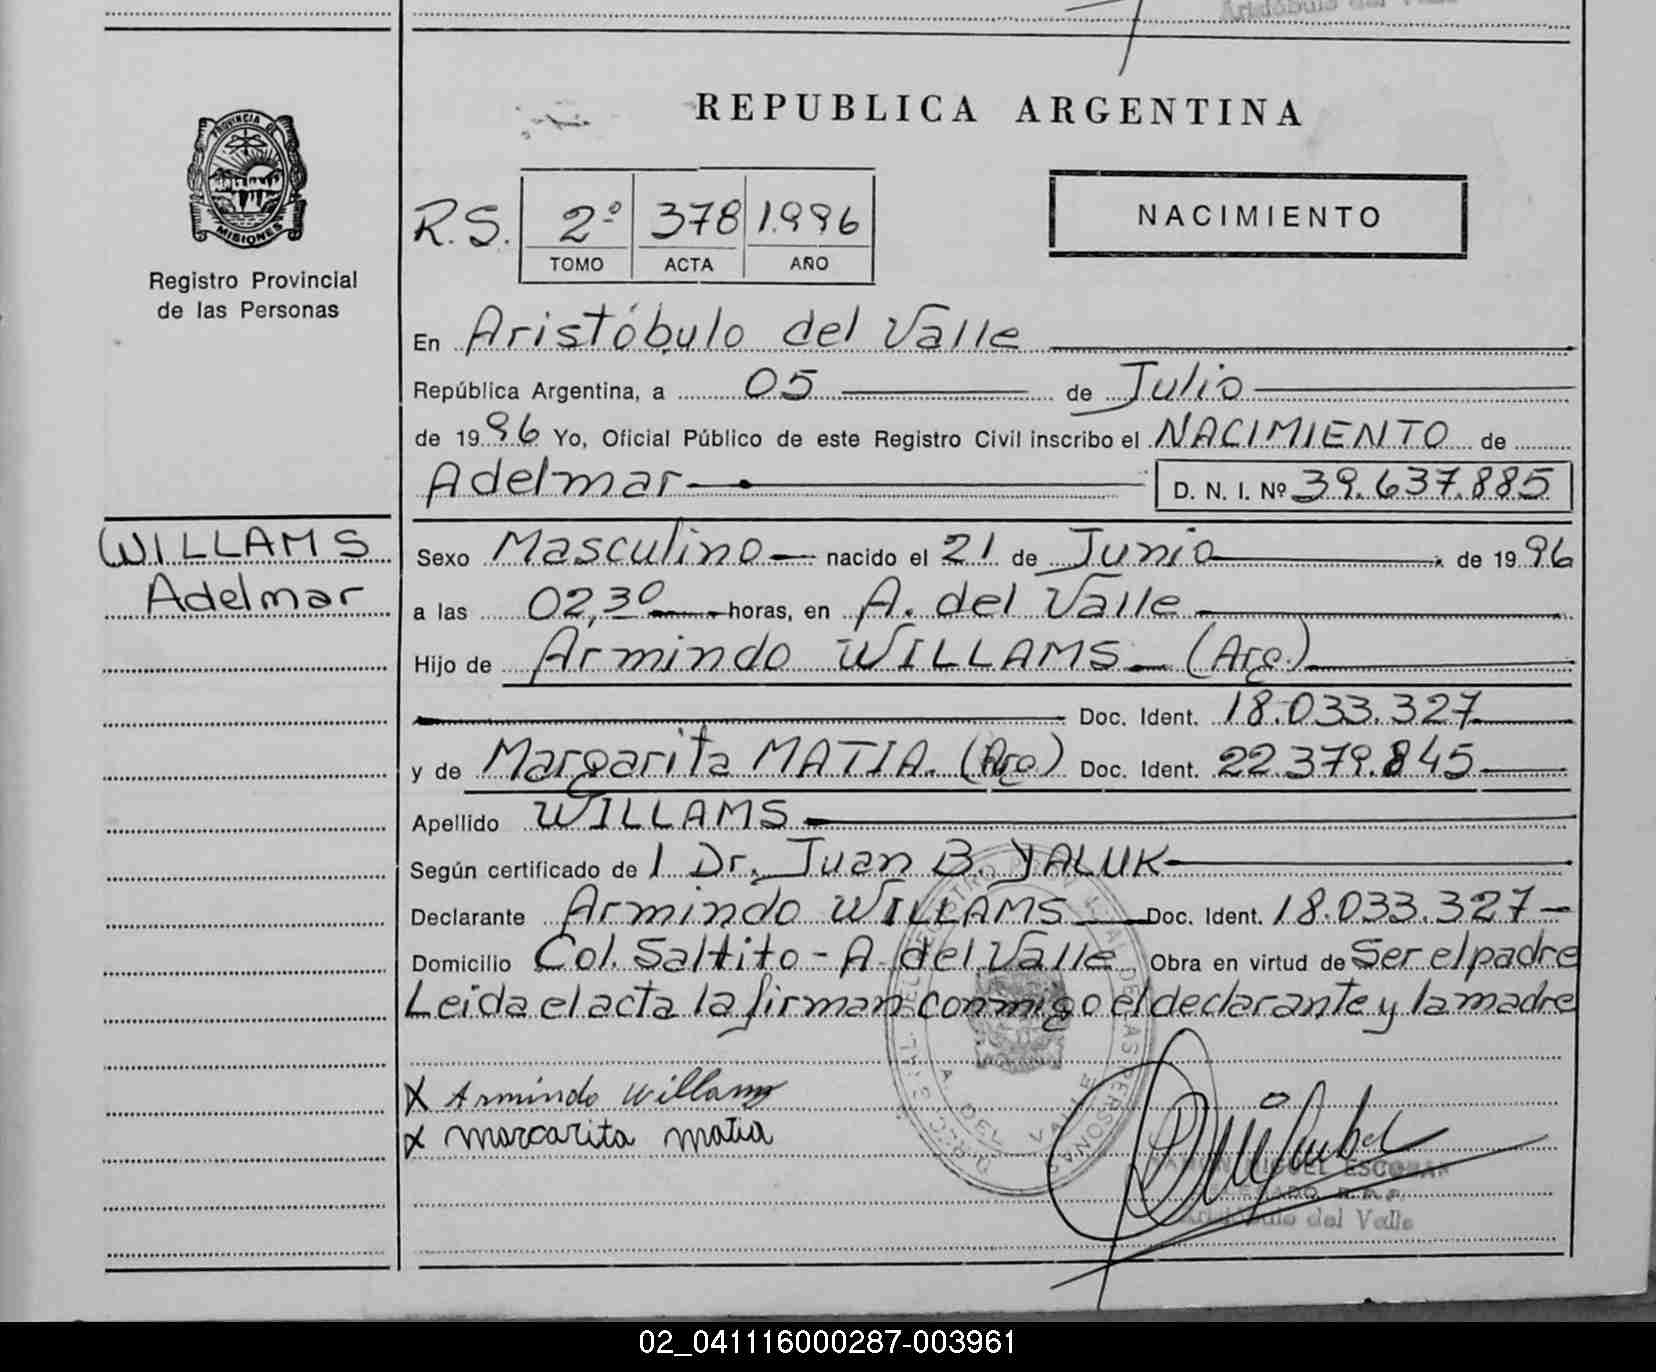 Aristóbulo del Valle
REPUBLICA ARGENTINA
PROVINCIA DE
MISIONES
Registro Provincial
de las Personas
R.S. 2º 378 1.996
TOMO ACTA AÑO
NACIMIENTO
En Aristóbulo del Valle
República Argentina, a 05 de Julio
de 1996 Yo, Oficial Público de este Registro Civil inscribo el NACIMIENTO de
Adelmar D. N. I. Nº 39.637.885
WILLAMS
Adelmar
Sexo Masculino nacido el 21 de Junio de 1996
a las 02,30 horas, en A. del Valle
Hijo de Armindo WILLAMS (Arg.)
Doc. Ident. 18.033.327
y de Margarita MATIA. (Arg) Doc. Ident. 22.379.845
Apellido WILLAMS
Según certificado de 1 Dr. Juan B. YALUK
Declarante Armindo WILLAMS Doc. Ident. 18.033.327-
Domicilio Col. Saltito - A. del Valle Obra en virtud de Ser el padre
Leida el acta la firman conmigo el declarante y la madre
X Armindo Willams
X Marcarita Matia
MIGUEL ESCOBAR
Aristóbulo del Valle
02_041116000287-003961